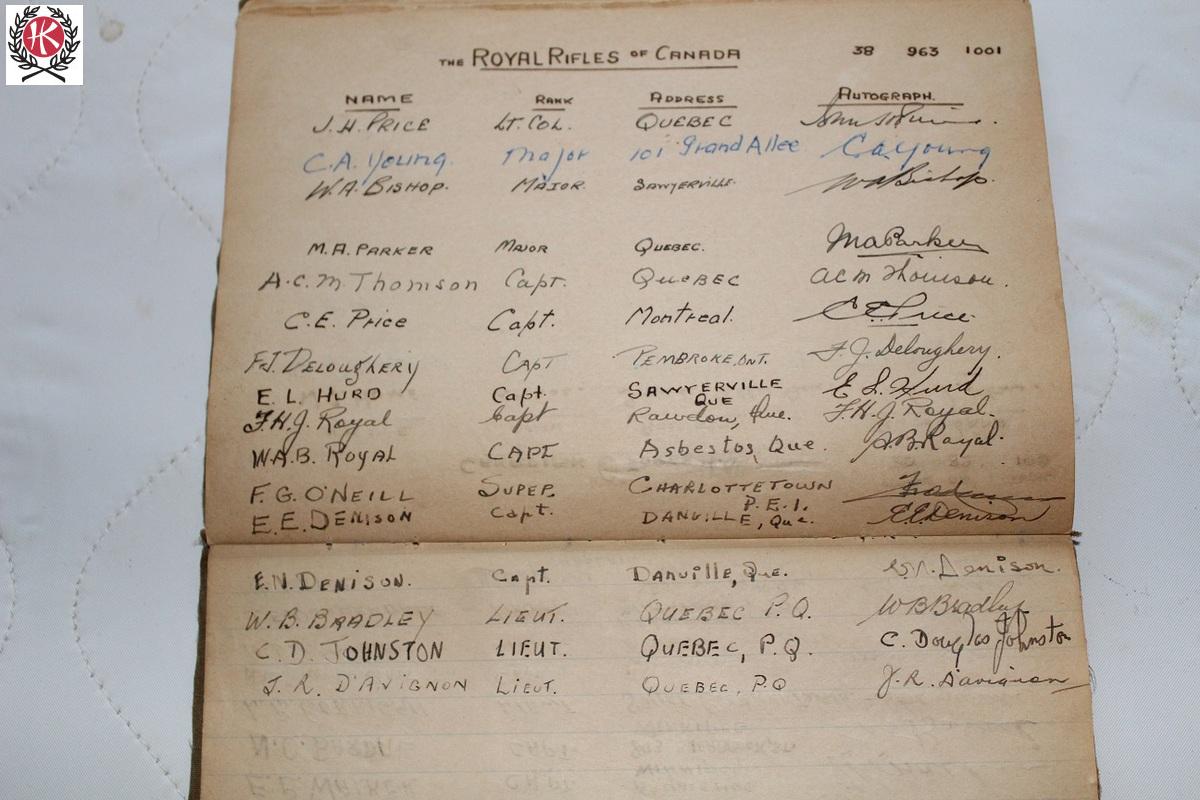 HK
THE ROYAL RIFLES OF CANADA 38 963 1001
NAME RANK ADDRESS AUTOGRAPH.
J.H. PRICE LT. COL. QUEBEC
C.A. Young. Major 101 Grand Allee C.A. Young
W.A. BISHOP. MAJOR. SAWYERVILLE. WA Bishop.
M.A. PARKER MAJOR QUEBEC. M A Parker
A.C.M. Thomson Capt. QUEBEC ACM Thomson.
C.E. Price Capt. Montreal. C E Price.
F.J. DELOUGHERY CAPT PEMBROKE, ONT. F.J. Deloughery.
E. L. HURD Capt. SAWYERVILLE QUE E L Hurd
F.H.J. Royal Capt Rawdon, Que. F.H.J. Royal.
W.A.B. ROYAL CAPT Asbestos, Que. A.B. Royal.
F. G. O'NEILL SUPER. CHARLOTTETOWN P.E.I.
E.E. DENISON Capt. DANVILLE, Que. E.E. Denison
E.N. DENISON. Capt. Danville, Que. E.N. Denison.
W.B. BRADLEY LIEUT. QUEBEC P.Q. W B Bradley
C.D. JOHNSTON LIEUT. QUEBEC, P.Q. C. Douglas Johnston
J.R. D'AVIGNON LIEUT. QUEBEC, P.Q J.R. D'avignon